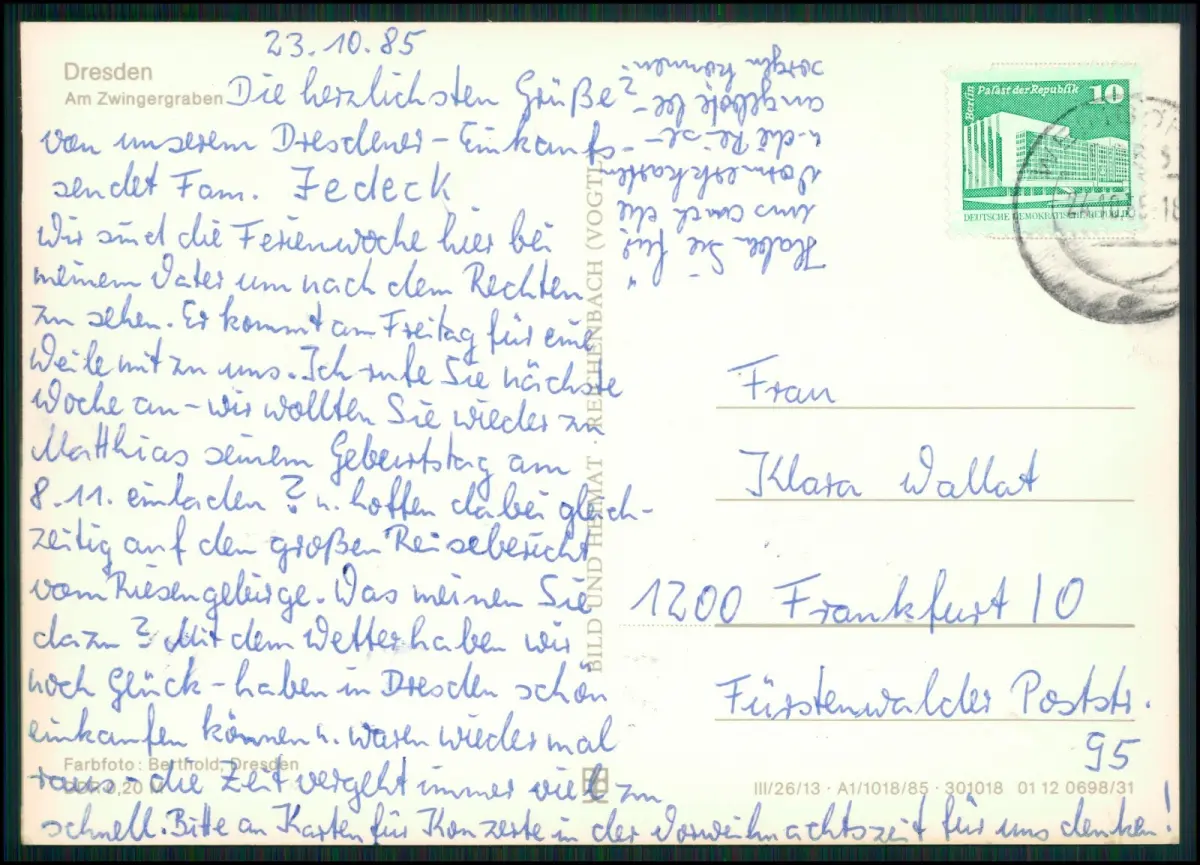 23.10.85
Dresden
Am Zwingergraben
Die herzlichsten Grüße
von unserem Dresdener-Einkaufs-
sendet Fam. Jedeck
Wir sind die Ferienwoche hier bei
meinem Vater um nach dem Rechten
zu sehen. Er kommt am Freitag für eine
Weile mit zu uns. Ich rufe Sie nächste
Woche an - wir wollten Sie wieder zu
Matthias seinem Geburtstag am
8.11. einladen? u. hoffen dabei gleich-
zeitig auf den großen Reisebericht
vom Riesengebirge. Was meinen Sie
dazu? Mit dem Wetter haben wir
noch Glück - haben in Dresden schön
einkaufen können u. waren wieder mal
raus - die Zeit vergeht immer viel zu
schnell. Bitte an Karten für Konzerte in der Vorweihnachtszeit für uns denken!
Haben Sie für
uns auch die
Vormerkkarten
u. die Reise-
angebote be-
sorgen können?
Farbfoto: Berthold, Dresden
DDR 0,20 M
BILD UND HEIMAT · REICHENBACH (VOGTL)
Berlin Palast der Republik 10
DEUTSCHE DEMOKRATISCHE REPUBLIK
Frau
Klara Wallat
1200 Frankfurt/O
Fürstenwalder Poststr.
95
III/26/13 · A1/1018/85 · 301018 01 12 0698/31